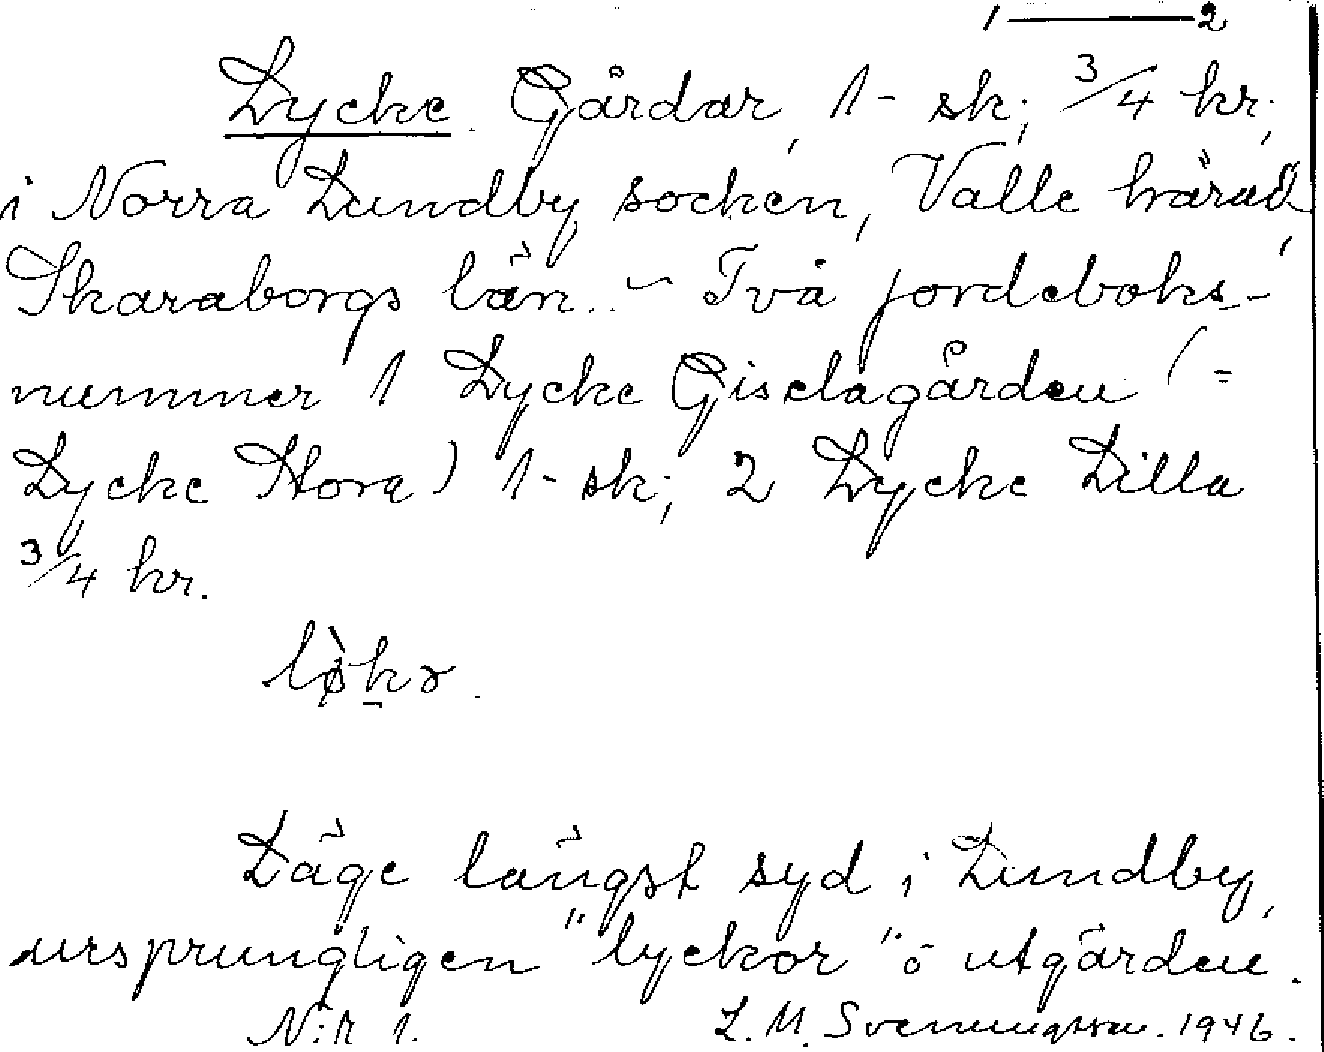 1 — 2
Lycke Gårdar, 1 - sk; 3/4 kr;
i Norra Lundby socken, Valle härad,
Skaraborgs län. - Två jordeboks-
nummer 1 Lycke Giselagården (=
Lycke Stora) 1 - sk; 2 Lycke Lilla
3/4 kr.
Läge längst syd i Lundby,
ursprungligen "lyckor" å utgärden.
N:r 1. L. M. Svenungsson. 1946.